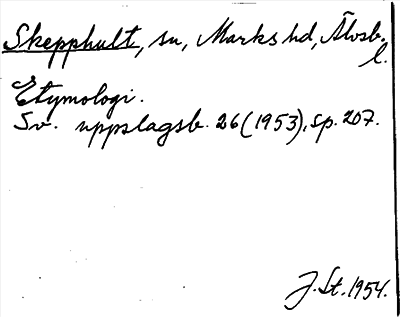 Skepphult, sn, Marks hd, Älvsb.
l.
Etymologi.
Sv. uppslagsb. 26 (1953), sp. 207.
J. St. 1954.